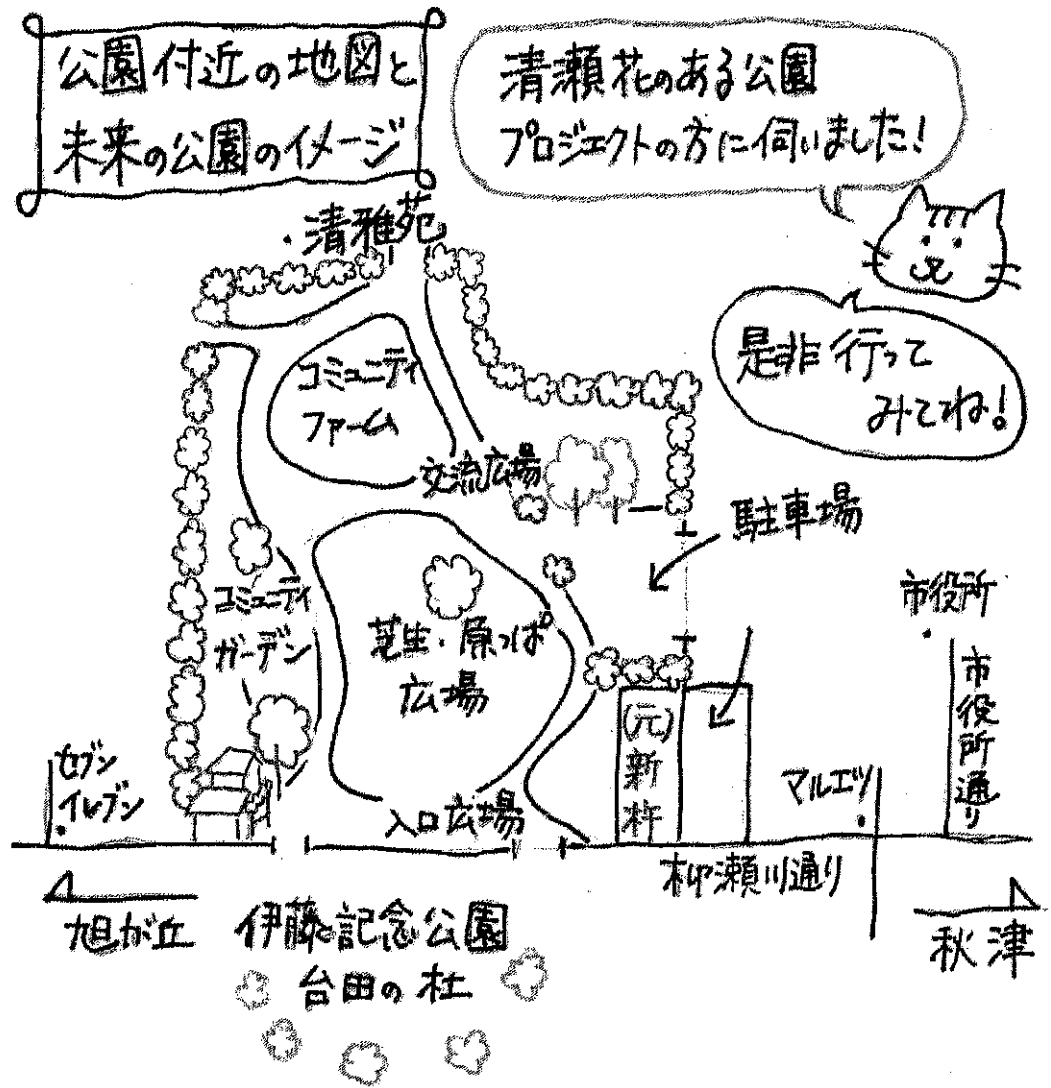 公園付近の地図と
未来の公園のイメージ
清瀬花のある公園
プロジェクトの方に伺いました!
・清雅苑
是非行って
みてね!
コミュニティ
ファーム
交流広場
駐車場
市役所
コミュニティ
ガーデン
芝生・原っぱ
広場
市役所通り
(元)
新杵
セブン
イレブン
マルエツ
入口広場
柳瀬川通り
旭が丘
伊藤記念公園
台田の杜
秋津